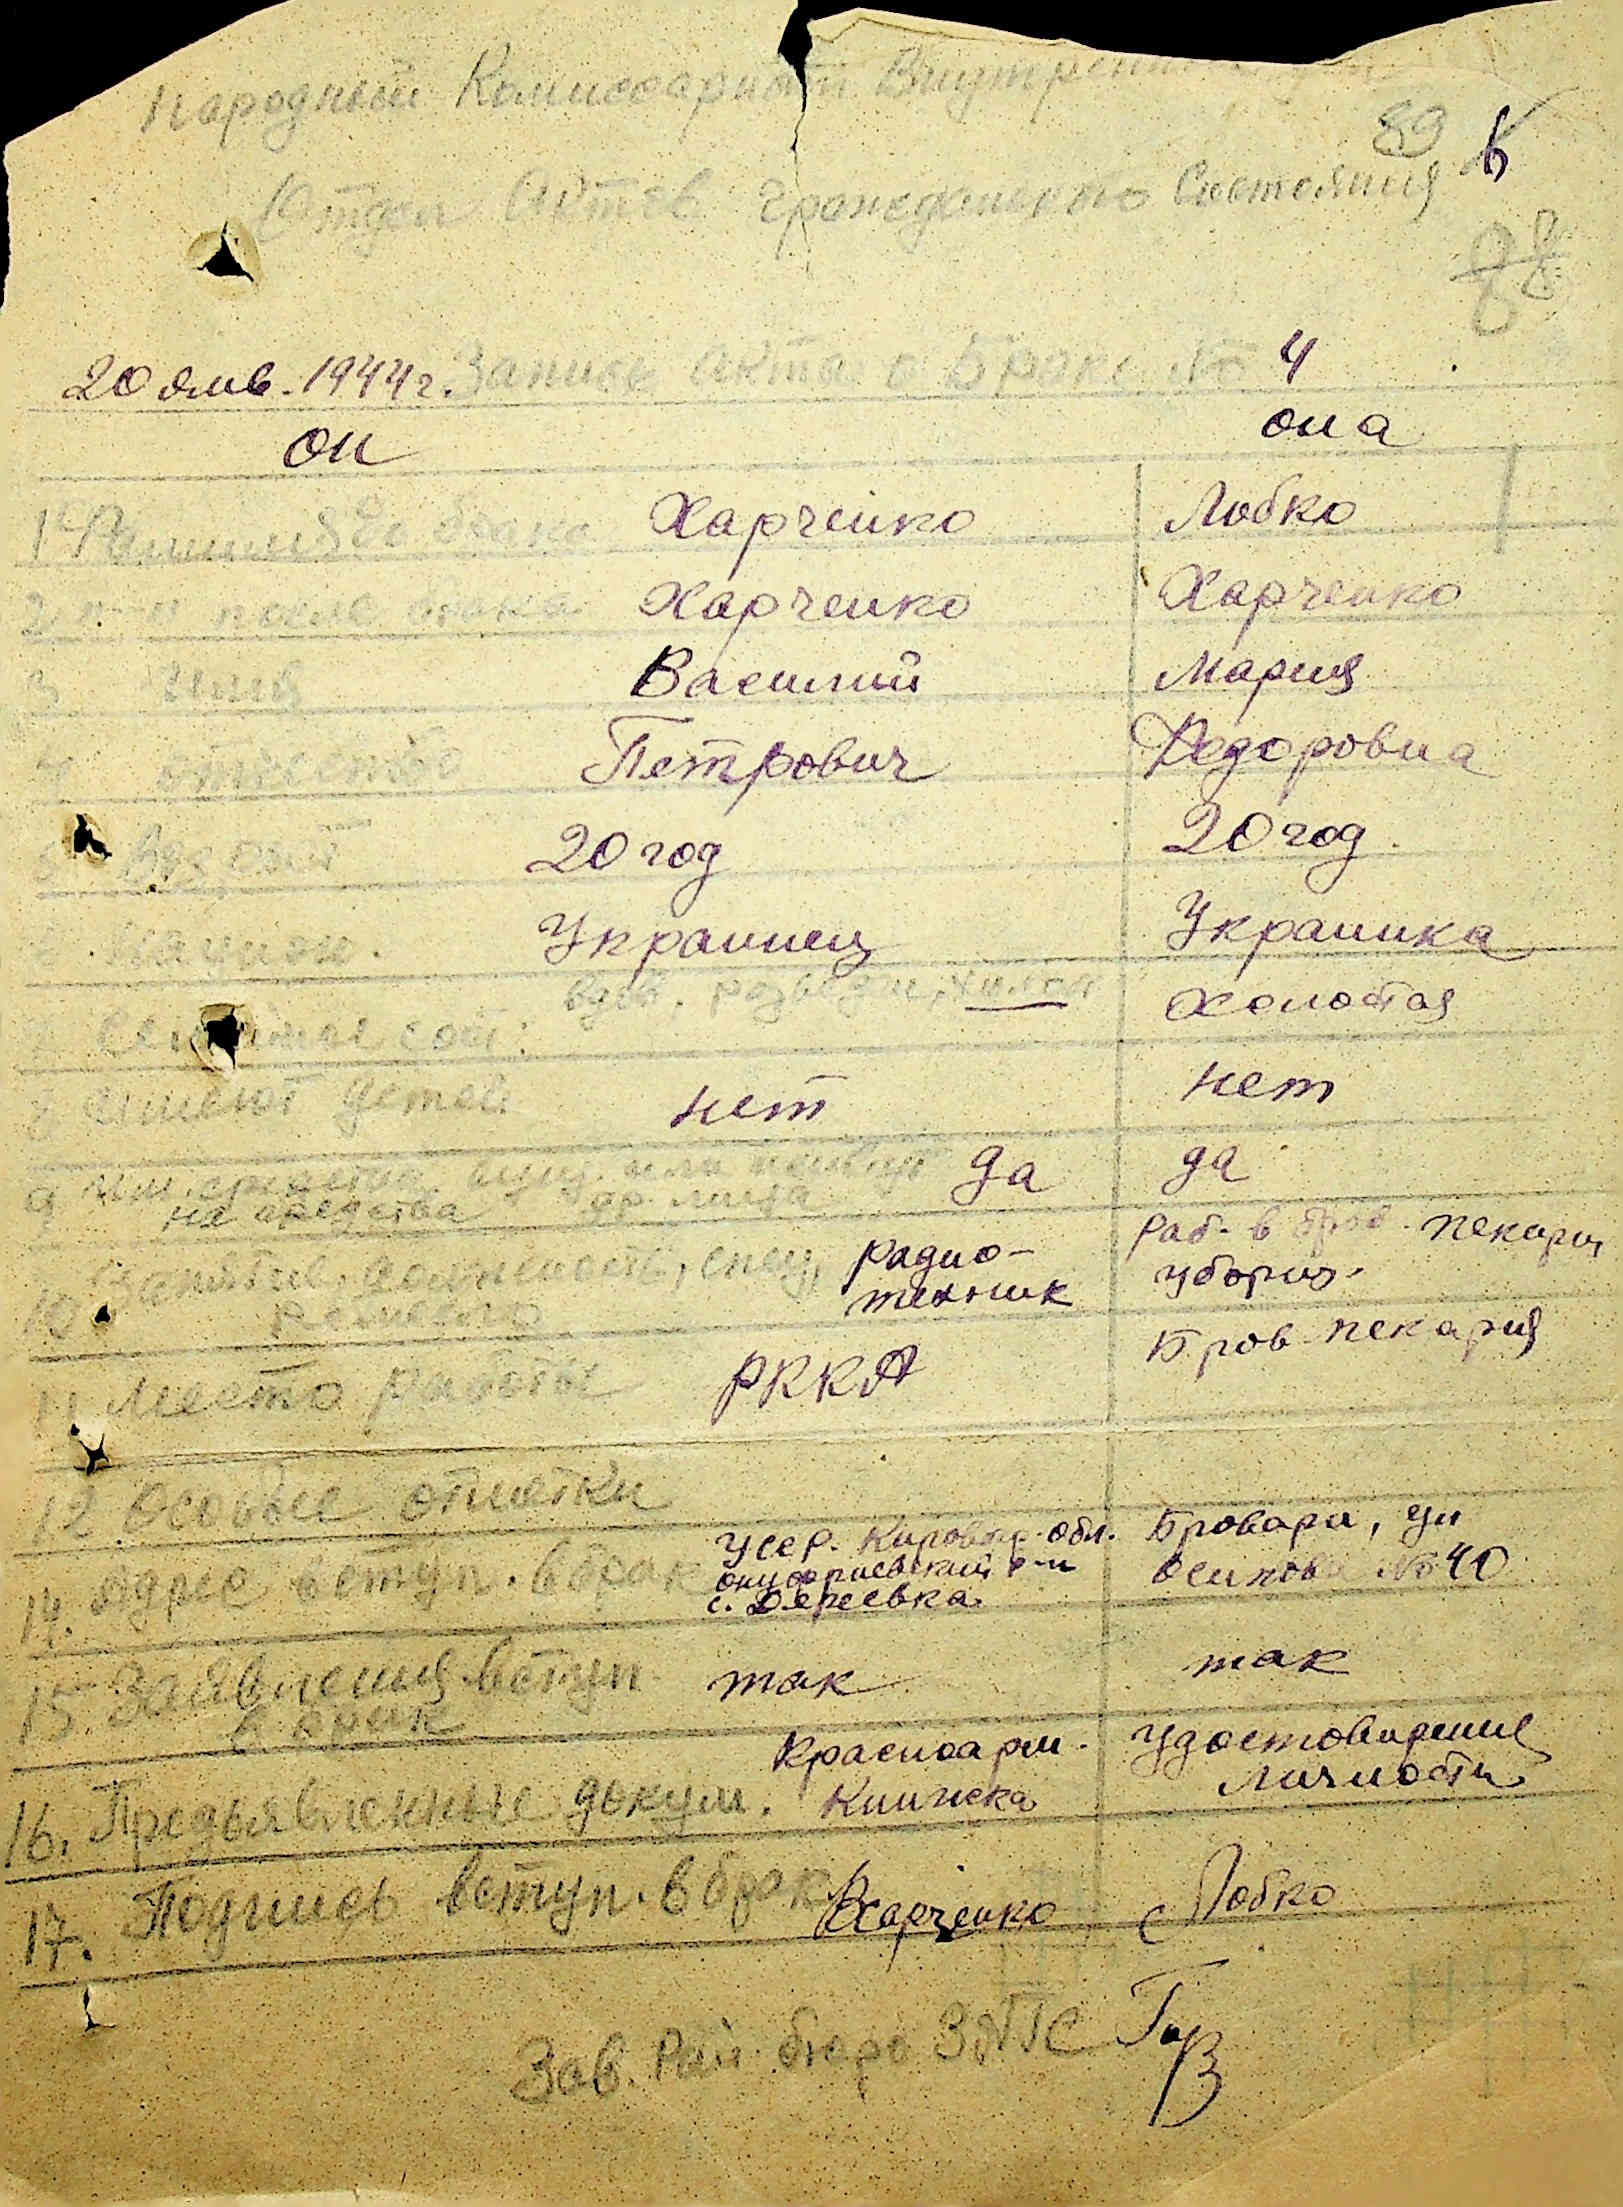 Народный Комиссариат Внутрен
89 в
Отдел Актов гражданского Состояния
20 янв. 1944 г. Запись акта о Браке № 4
он она
1 Фамилия до брака Харченко Лобко
2 после брака Харченко Харченко
3 имя Василий Мария
4 отчество Петрович Федоровна
5 Возраст 20 год 20 год.
6 Национ. Украинец Украинка
вдов. разведен, холост
Семейное сост. Холостая
8 имеют детей нет нет
9 им. средства или живут да да
на средства др. лица
10 Занятие, должность, спец, радио- Раб. в Бров. пекарни
ремесло техник уборщ.
11 Место работы РККА Бров. пекарня
12 Особые отметки
14. Адрес вступ. в брак УССР. Кировогр. обл. Бровары, ул
онуфриевский р-н Осипова № 40
с. Деревка
15 Заявления вступ. так так
в брак
16. Предъявленные докум. Красноарм. Удостоверение
Книжка личности
17. Подпись вступ. в брак Харченко Лобко
Зав. Рай. бюро ЗАГС